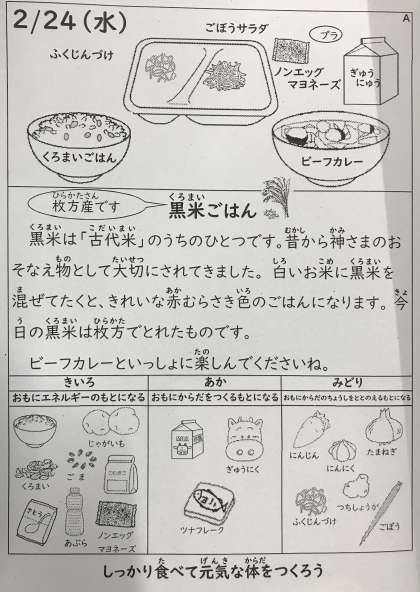 2/24(水)
A
ごぼうサラダ
ふくじんづけ
プラ
ノンエッグ
マヨネーズ
ぎゅう
にゅう
くろまいごはん
ビーフカレー
ひらかたさん
枚方産です
くろまい
黒米ごはん
くろまい こだいまい むかし かみ
黒米は「古代米」のうちのひとつです。昔から神さまのお
もの たいせつ しろ こめ くろまい
そなえ物として大切にされてきました。白いお米に黒米を
ま あか いろ きょ
混ぜてたくと、きれいな赤むらさき色のごはんになります。今
う くろまい ひらかた
日の黒米は枚方でとれたものです。
たの
ビーフカレーといっしょに楽しんでくださいね。
きいろ
あか
みどり
おもにエネルギーのもとになる
おもにからだをつくるもとになる
おもにからだのちょうしをととのえるもとになる
じゃがいも
くろまい
ごま
こむぎこ
さとう
あぶら
ノンエッグ
マヨネーズ
ぎゅうにく
ツナフレーク
にんじん
にんにく
たまねぎ
ふくじんづけ
つちしょうが
ごぼう
た げんき からだ
しっかり食べて元気な体をつくろう